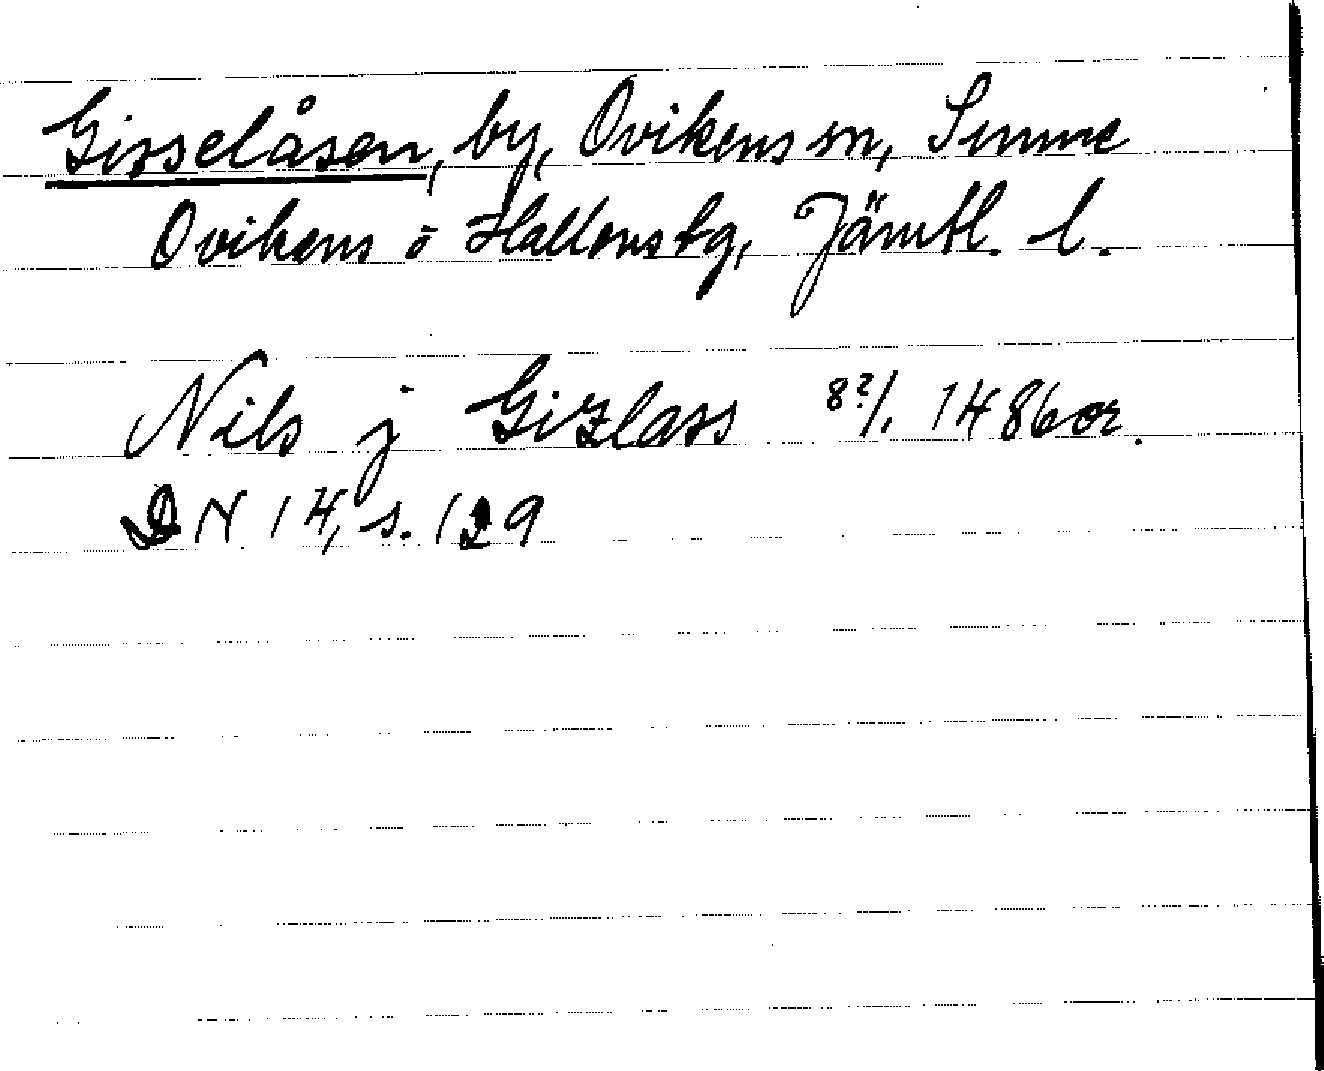 Gisselåsen, by, Ovikens sn, Sunne
Ovikens o Hallens tg, Jämtl. l.
Nils j Gizlass 8?/. 1486 or.
DN 14, s. 129